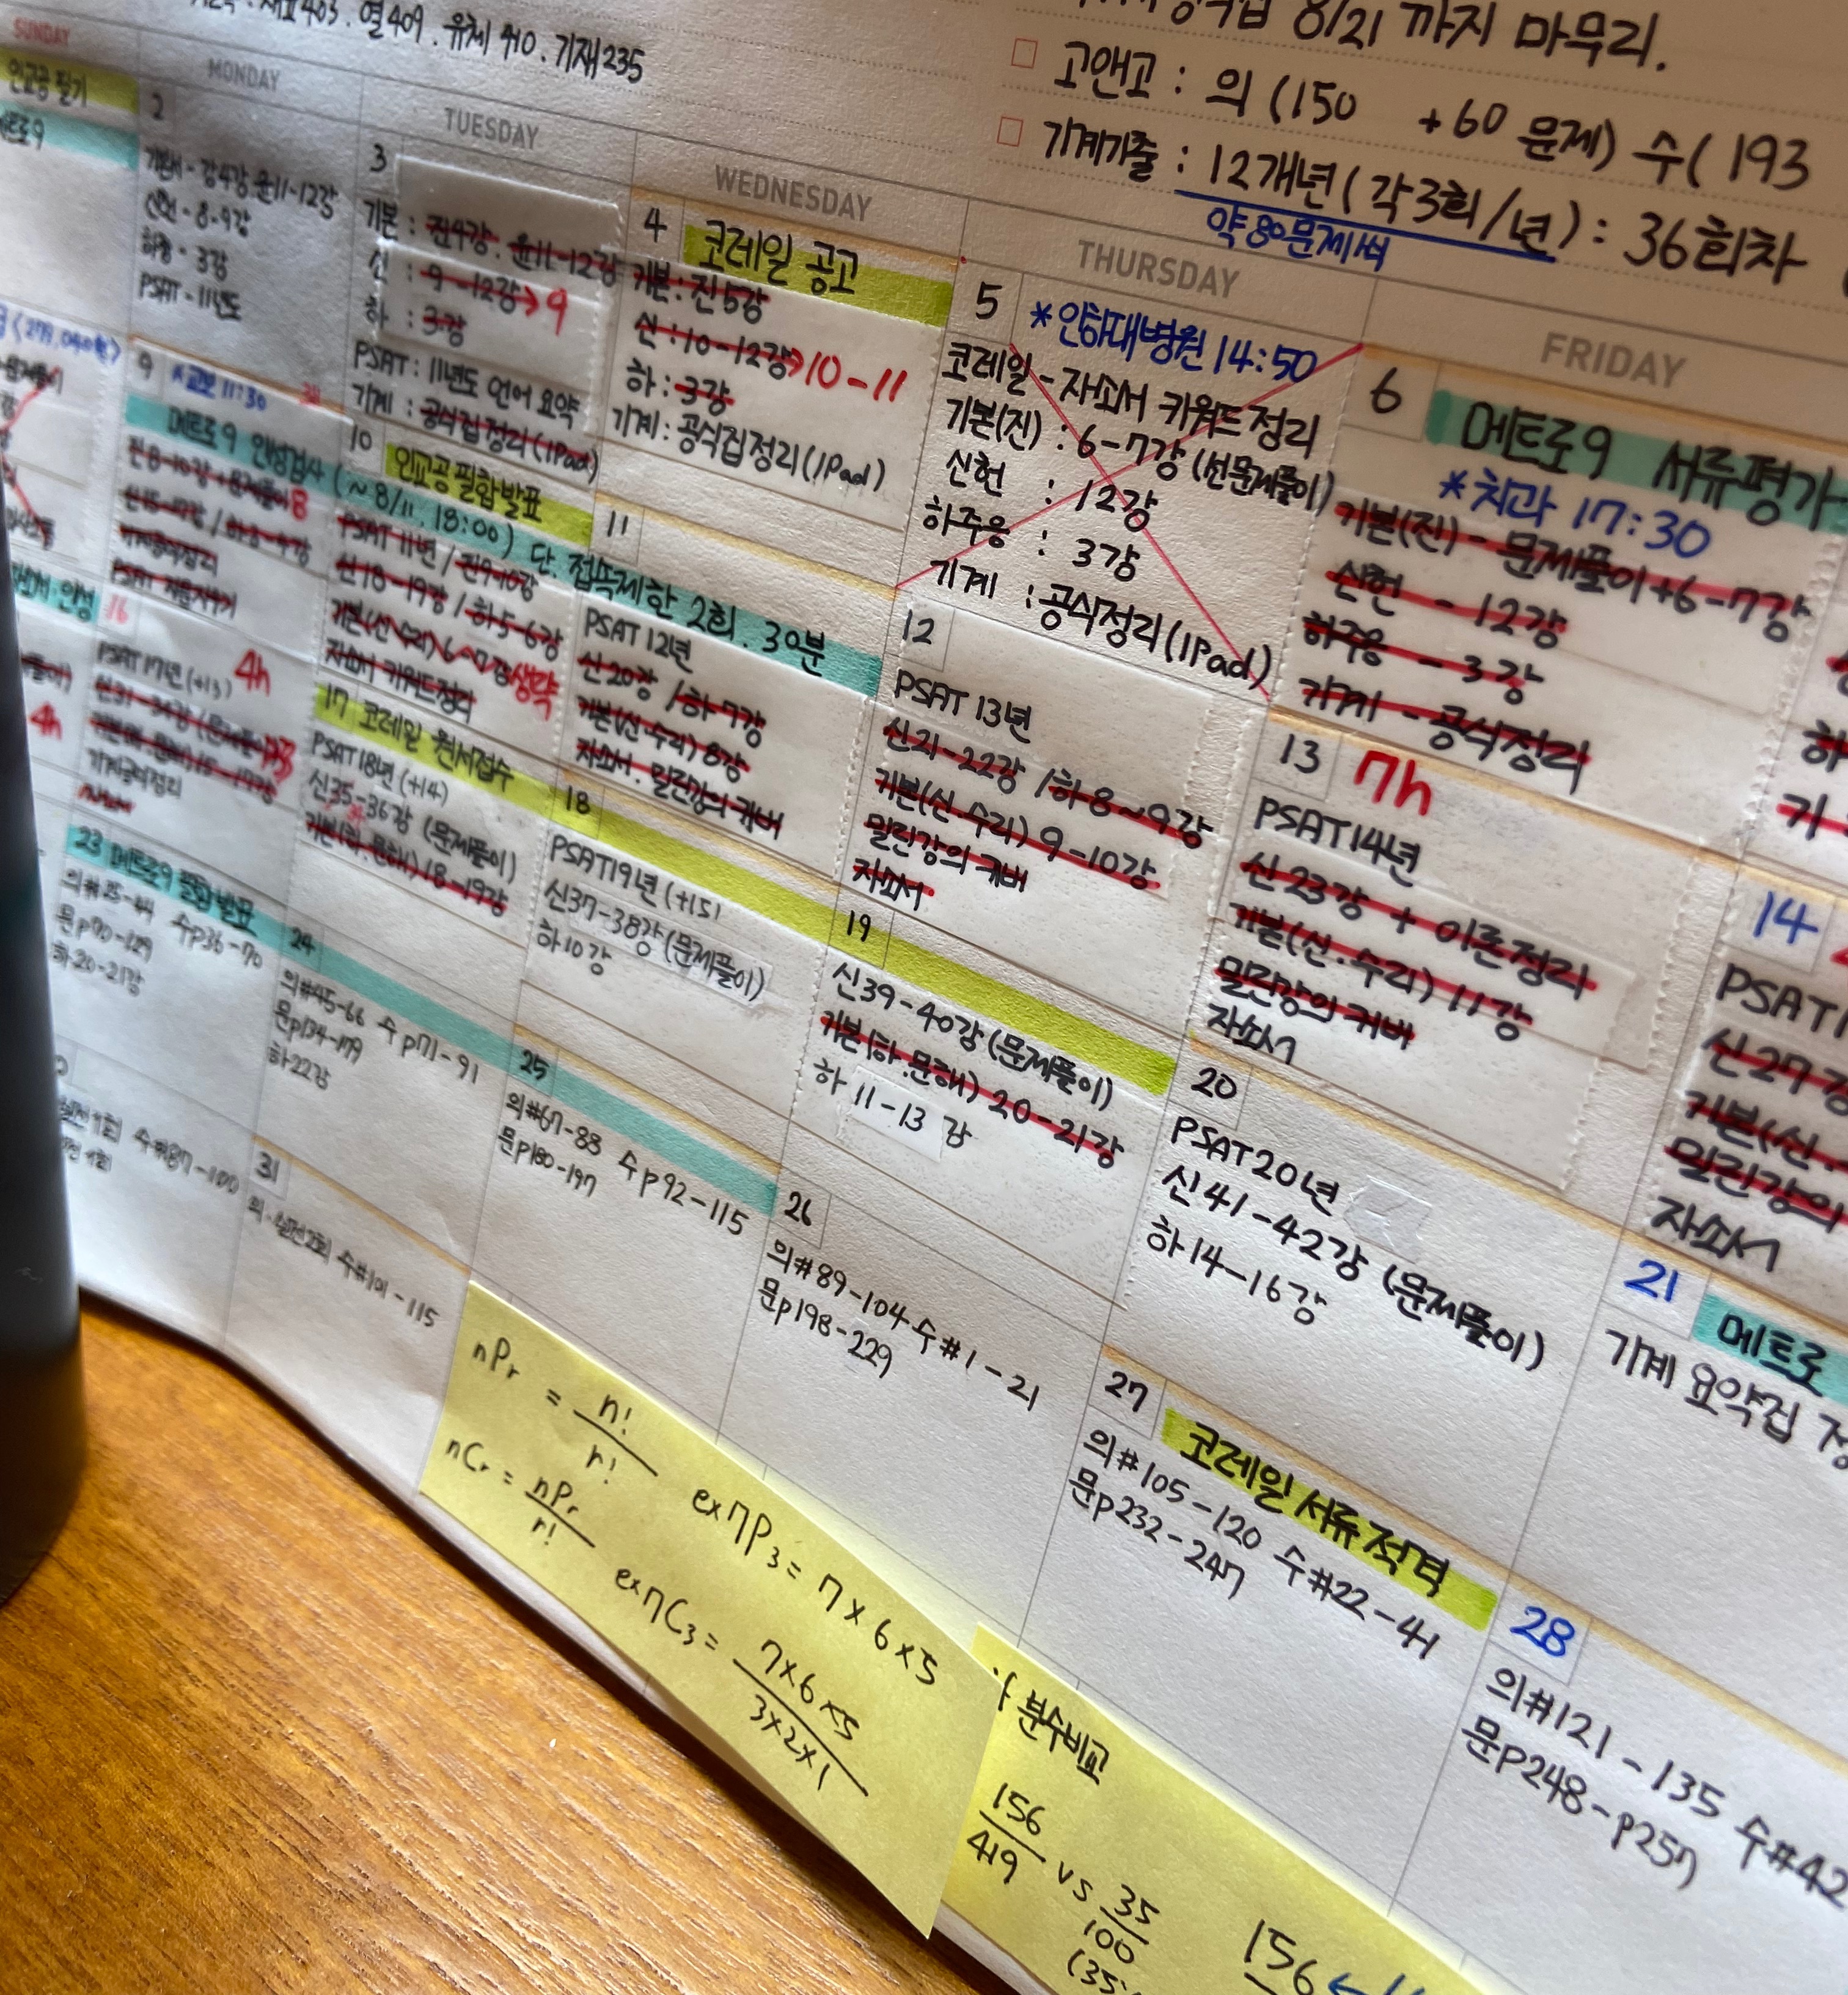 8/21 까지 마무리.
열409. 유체 410. 기재235
고앤고 : 의 (150 +60 문제) 수( 193
기계기출 : 12개년( 각3회/년) : 36회차
약80문제/회
SUNDAY
MONDAY
TUESDAY
WEDNESDAY
THURSDAY
FRIDAY
인교공 필기
메트로9
2
신헌 - 8-9강
하중 - 3강
PSAT - 11년도
3
기본 : 진4강. 윤11-12강
신 : 9-12강→9
하 : 3강
PSAT : 11년도 언어 요약
기계 : 공식집정리(IPad)
4 코레일 공고
기본 : 진5강
신 : 10-12강→10-11
하 : 3강
기계 : 공식집정리(IPad)
5 *인하대병원 14:50
코레일 - 자소서 키워드정리
기본(진) : 6-7강 (선문제풀이)
신헌 : 12강
하주응 : 3강
기계 : 공식정리(IPad)
6 메트로9 서류평가
*치과 17:30
기본(진) - 문제풀이+6-7강
신헌 - 12강
하주응 - 3강
기계 - 공식정리
9 *교보 11:30
메트로9 인성검사 (~8/11. 18:00) 단. 접속제한 2회. 30분
10 인교공 필합발표
PSAT 11년 / 진9-10강
신18-19강 / 하5-6강
기본(신.수리) 6~7강 생략
자소서 키워드정리
11
PSAT 12년
신20강 / 하7강
기본(신.수리) 8강
자소서. 밀린강의 커버
12
PSAT 13년
신21-22강 / 하8~9강
기본(신.수리) 9-10강
밀린강의 커버
자소서
13 7h
PSAT14년
신23강 + 이론정리
기본(신.수리) 11강
밀린강의 커버
자소서
14
PSAT1
신27강
기본(신.
밀린강의
자소서
16
PSAT17년(+13) 4h
신31-34강 (문제풀이)
기계공식정리
4h
17 코레일 원서접수
PSAT18년 (+14)
신35-36강 (문제풀이)
기본(하.문해) 18-19강
18
PSAT19년 (+15)
신37-38강(문제풀이)
하10강
19
신39-40강(문제풀이)
기본(하.문해) 20-21강
하 11-13 강
20
PSAT20년
신41-42강 (문제풀이)
하14-16강
21 메트로
기계 요약집 정
23 메트로9 필합발표
의#25-44 수p36-70
문p70-129
하20-21강
24
의#45-66 수p71-91
문p134-179
하22강
25
의#67-88 수p92-115
문p180-197
26
의#89-104 수#1-21
문p198-229
27 코레일 서류적격
의#105-120 수#22-41
문p232-247
28
의#121-135 수#42
문p248-p257
수#87-100
31
의-실전2회 수#101-115
nPr = n!/r! ex 7P3 = 7×6×5
nCr = nPr/r! ex 7C3 = 7×6×5/3×2×1
분수비교
156/419 vs 35/100
(35
156 ←